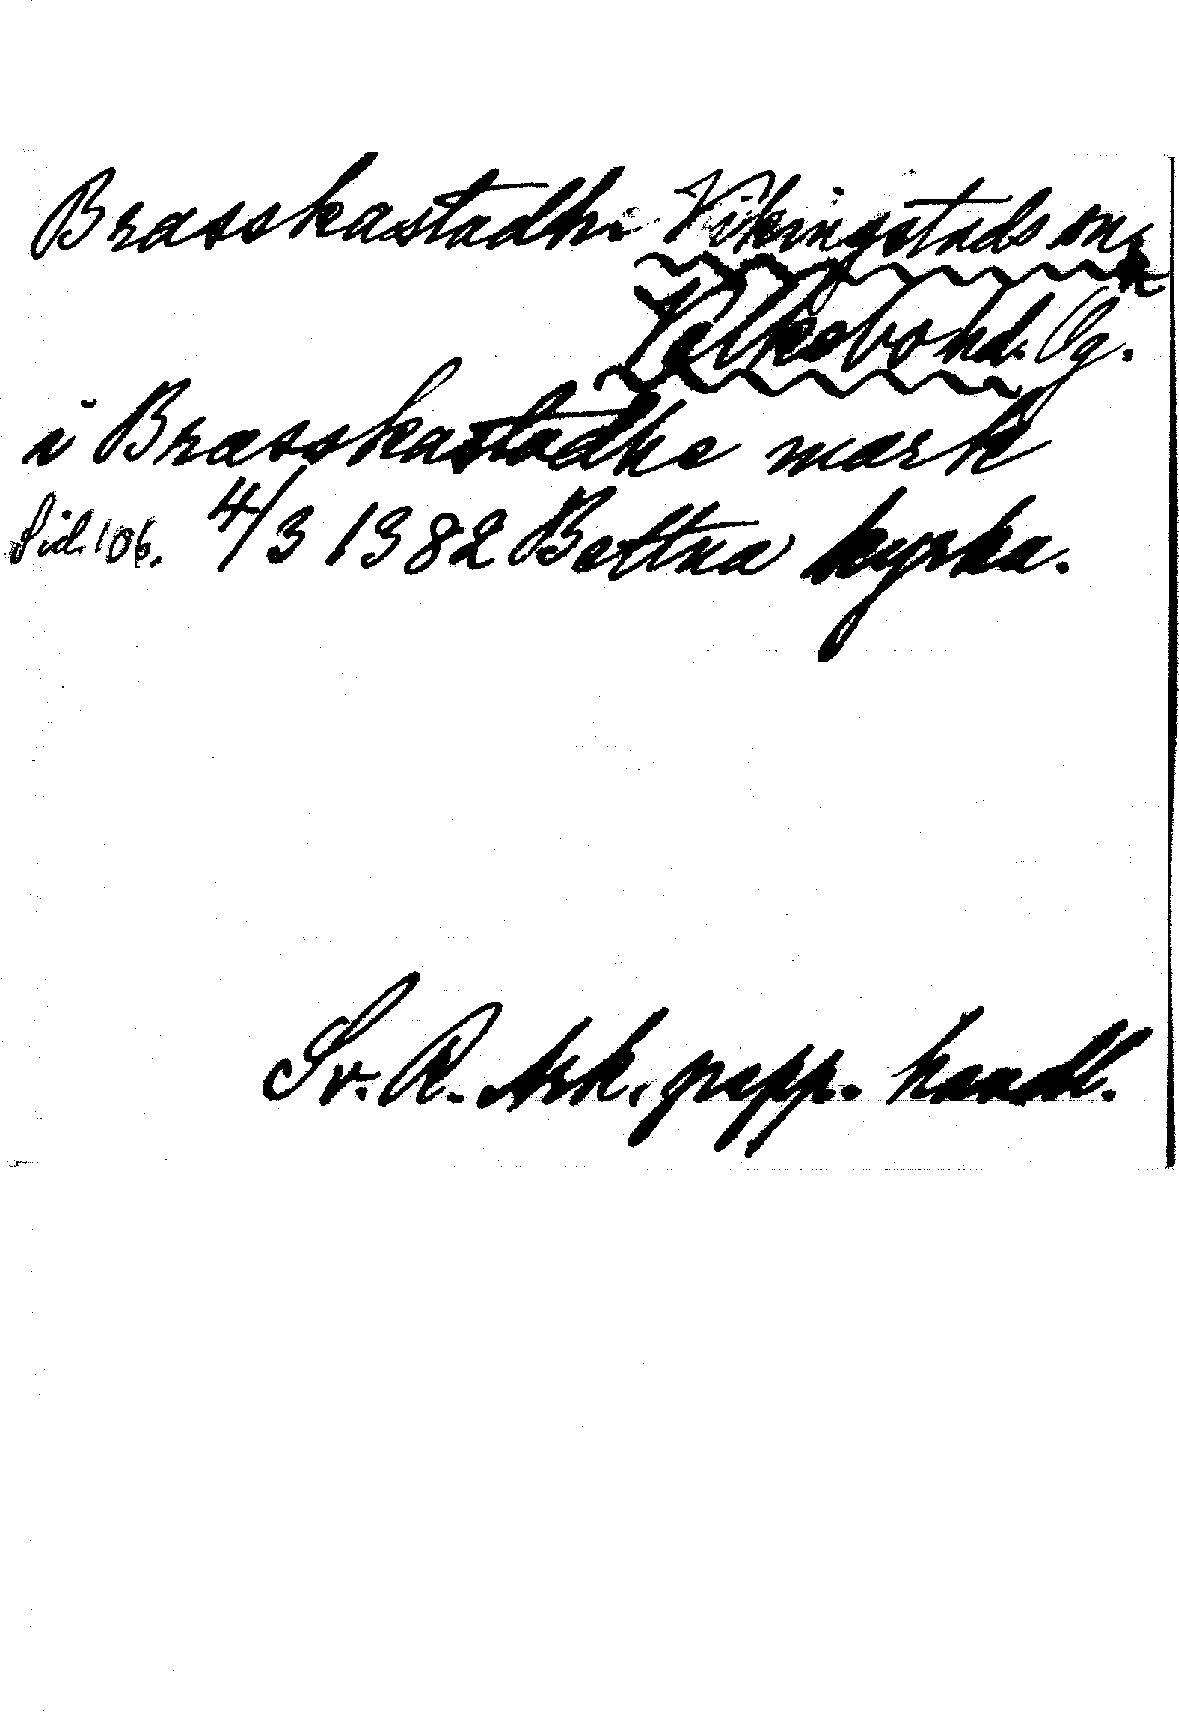 Brasskastadhe Vikingstads sn,
Valkebo hd. Ög.
i Brasskastadhe mark
Sid. 106. 4/3 1382 Bettna kyrka.
Sv. R. Ark. papp. handl.